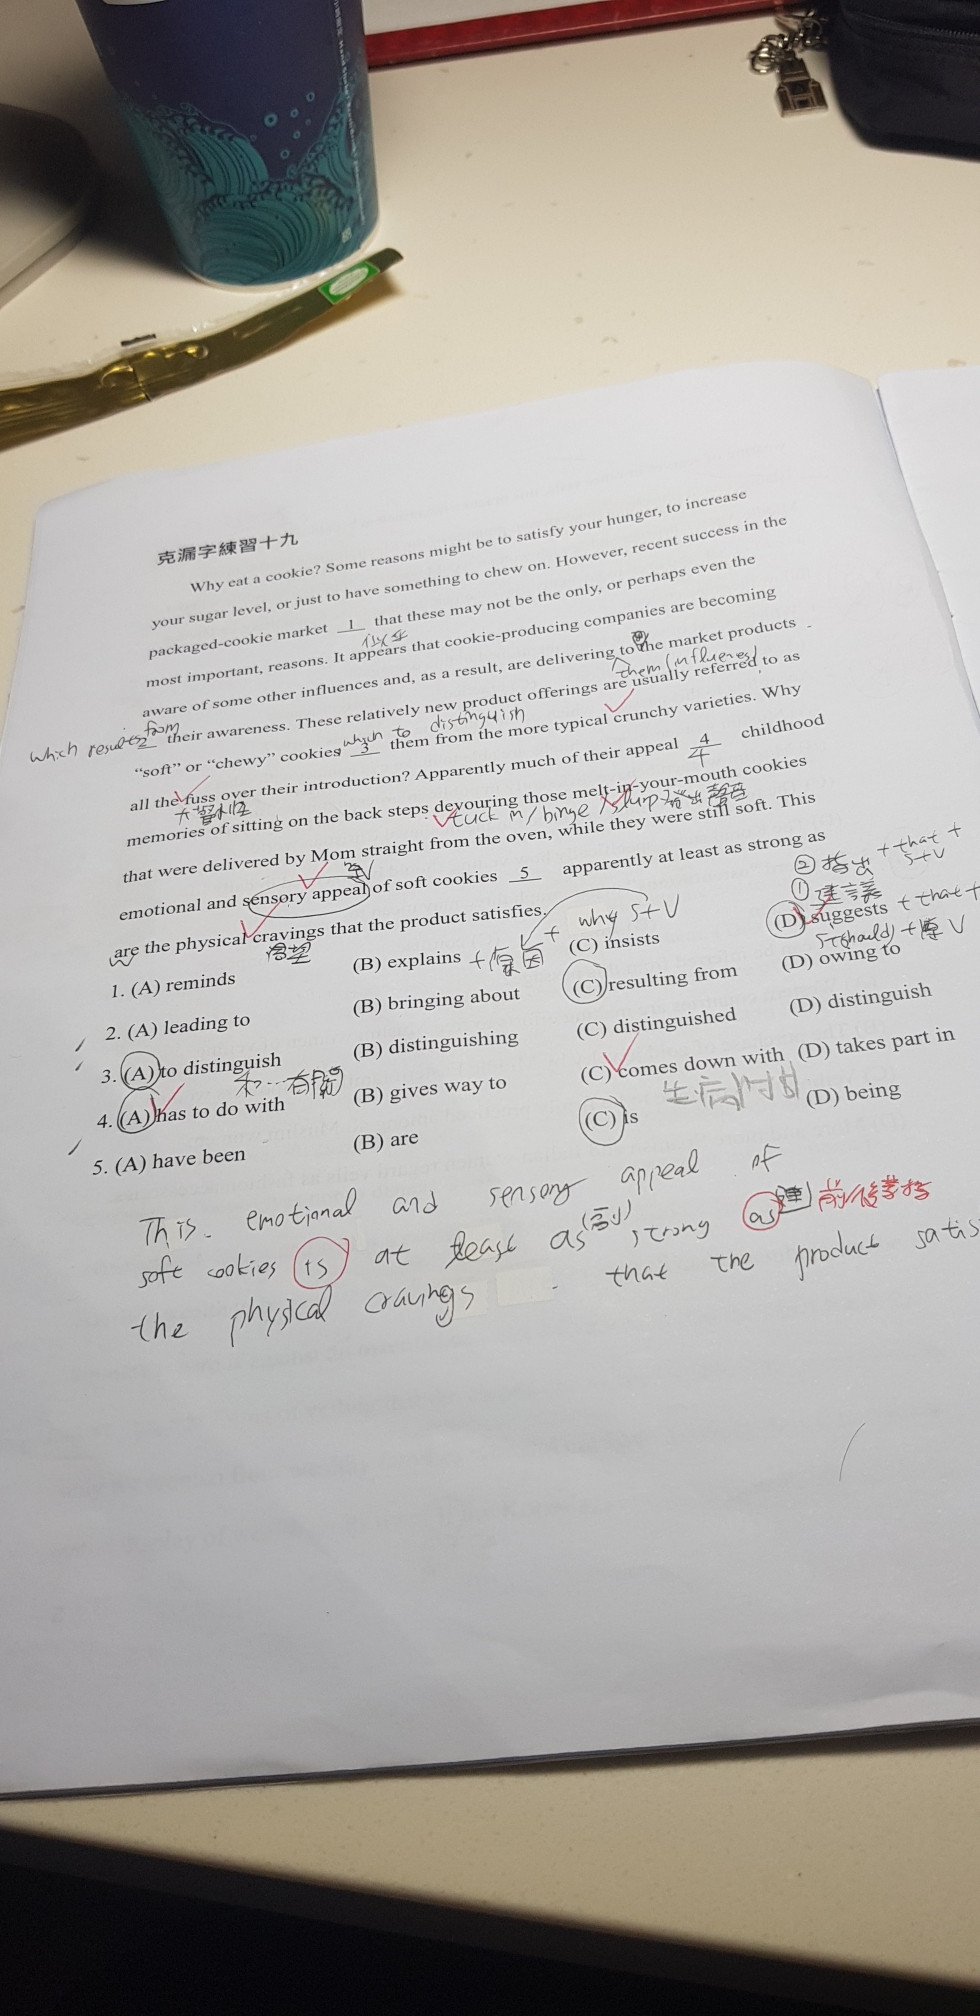 克漏字練習十九
Why eat a cookie? Some reasons might be to satisfy your hunger, to increase
your sugar level, or just to have something to chew on. However, recent success in the
packaged-cookie market 1 that these may not be the only, or perhaps even the
most important, reasons. It appears that cookie-producing companies are becoming
aware of some other influences and, as a result, are delivering to the market products
them (influences)
which results from
2 their awareness. These relatively new product offerings are usually referred to as
which to distinguish
"soft" or "chewy" cookies 3 them from the more typical crunchy varieties. Why
all the fuss over their introduction? Apparently much of their appeal 4 childhood
大驚小怪
memories of sitting on the back steps devouring those melt-in-your-mouth cookies
tuck in / binge / slurp 發出聲音
that were delivered by Mom straight from the oven, while they were still soft. This
emotional and sensory appeal of soft cookies 5 apparently at least as strong as
are the physical cravings that the product satisfies.
渴望
② 指出 + that + S+V
① 建議 + that + S+(should)+原V
+ 原因 + why S+V
1. (A) reminds (B) explains (C) insists (D) suggests
2. (A) leading to (B) bringing about (C) resulting from (D) owing to
3. (A) to distinguish (B) distinguishing (C) distinguished (D) distinguish
和...有關
4. (A) has to do with (B) gives way to (C) comes down with (D) takes part in
生病
5. (A) have been (B) are (C) is (D) being
This emotional and sensory appeal of
soft cookies is at least as (副) strong as (連) 前後
the physical cravings that the product satis